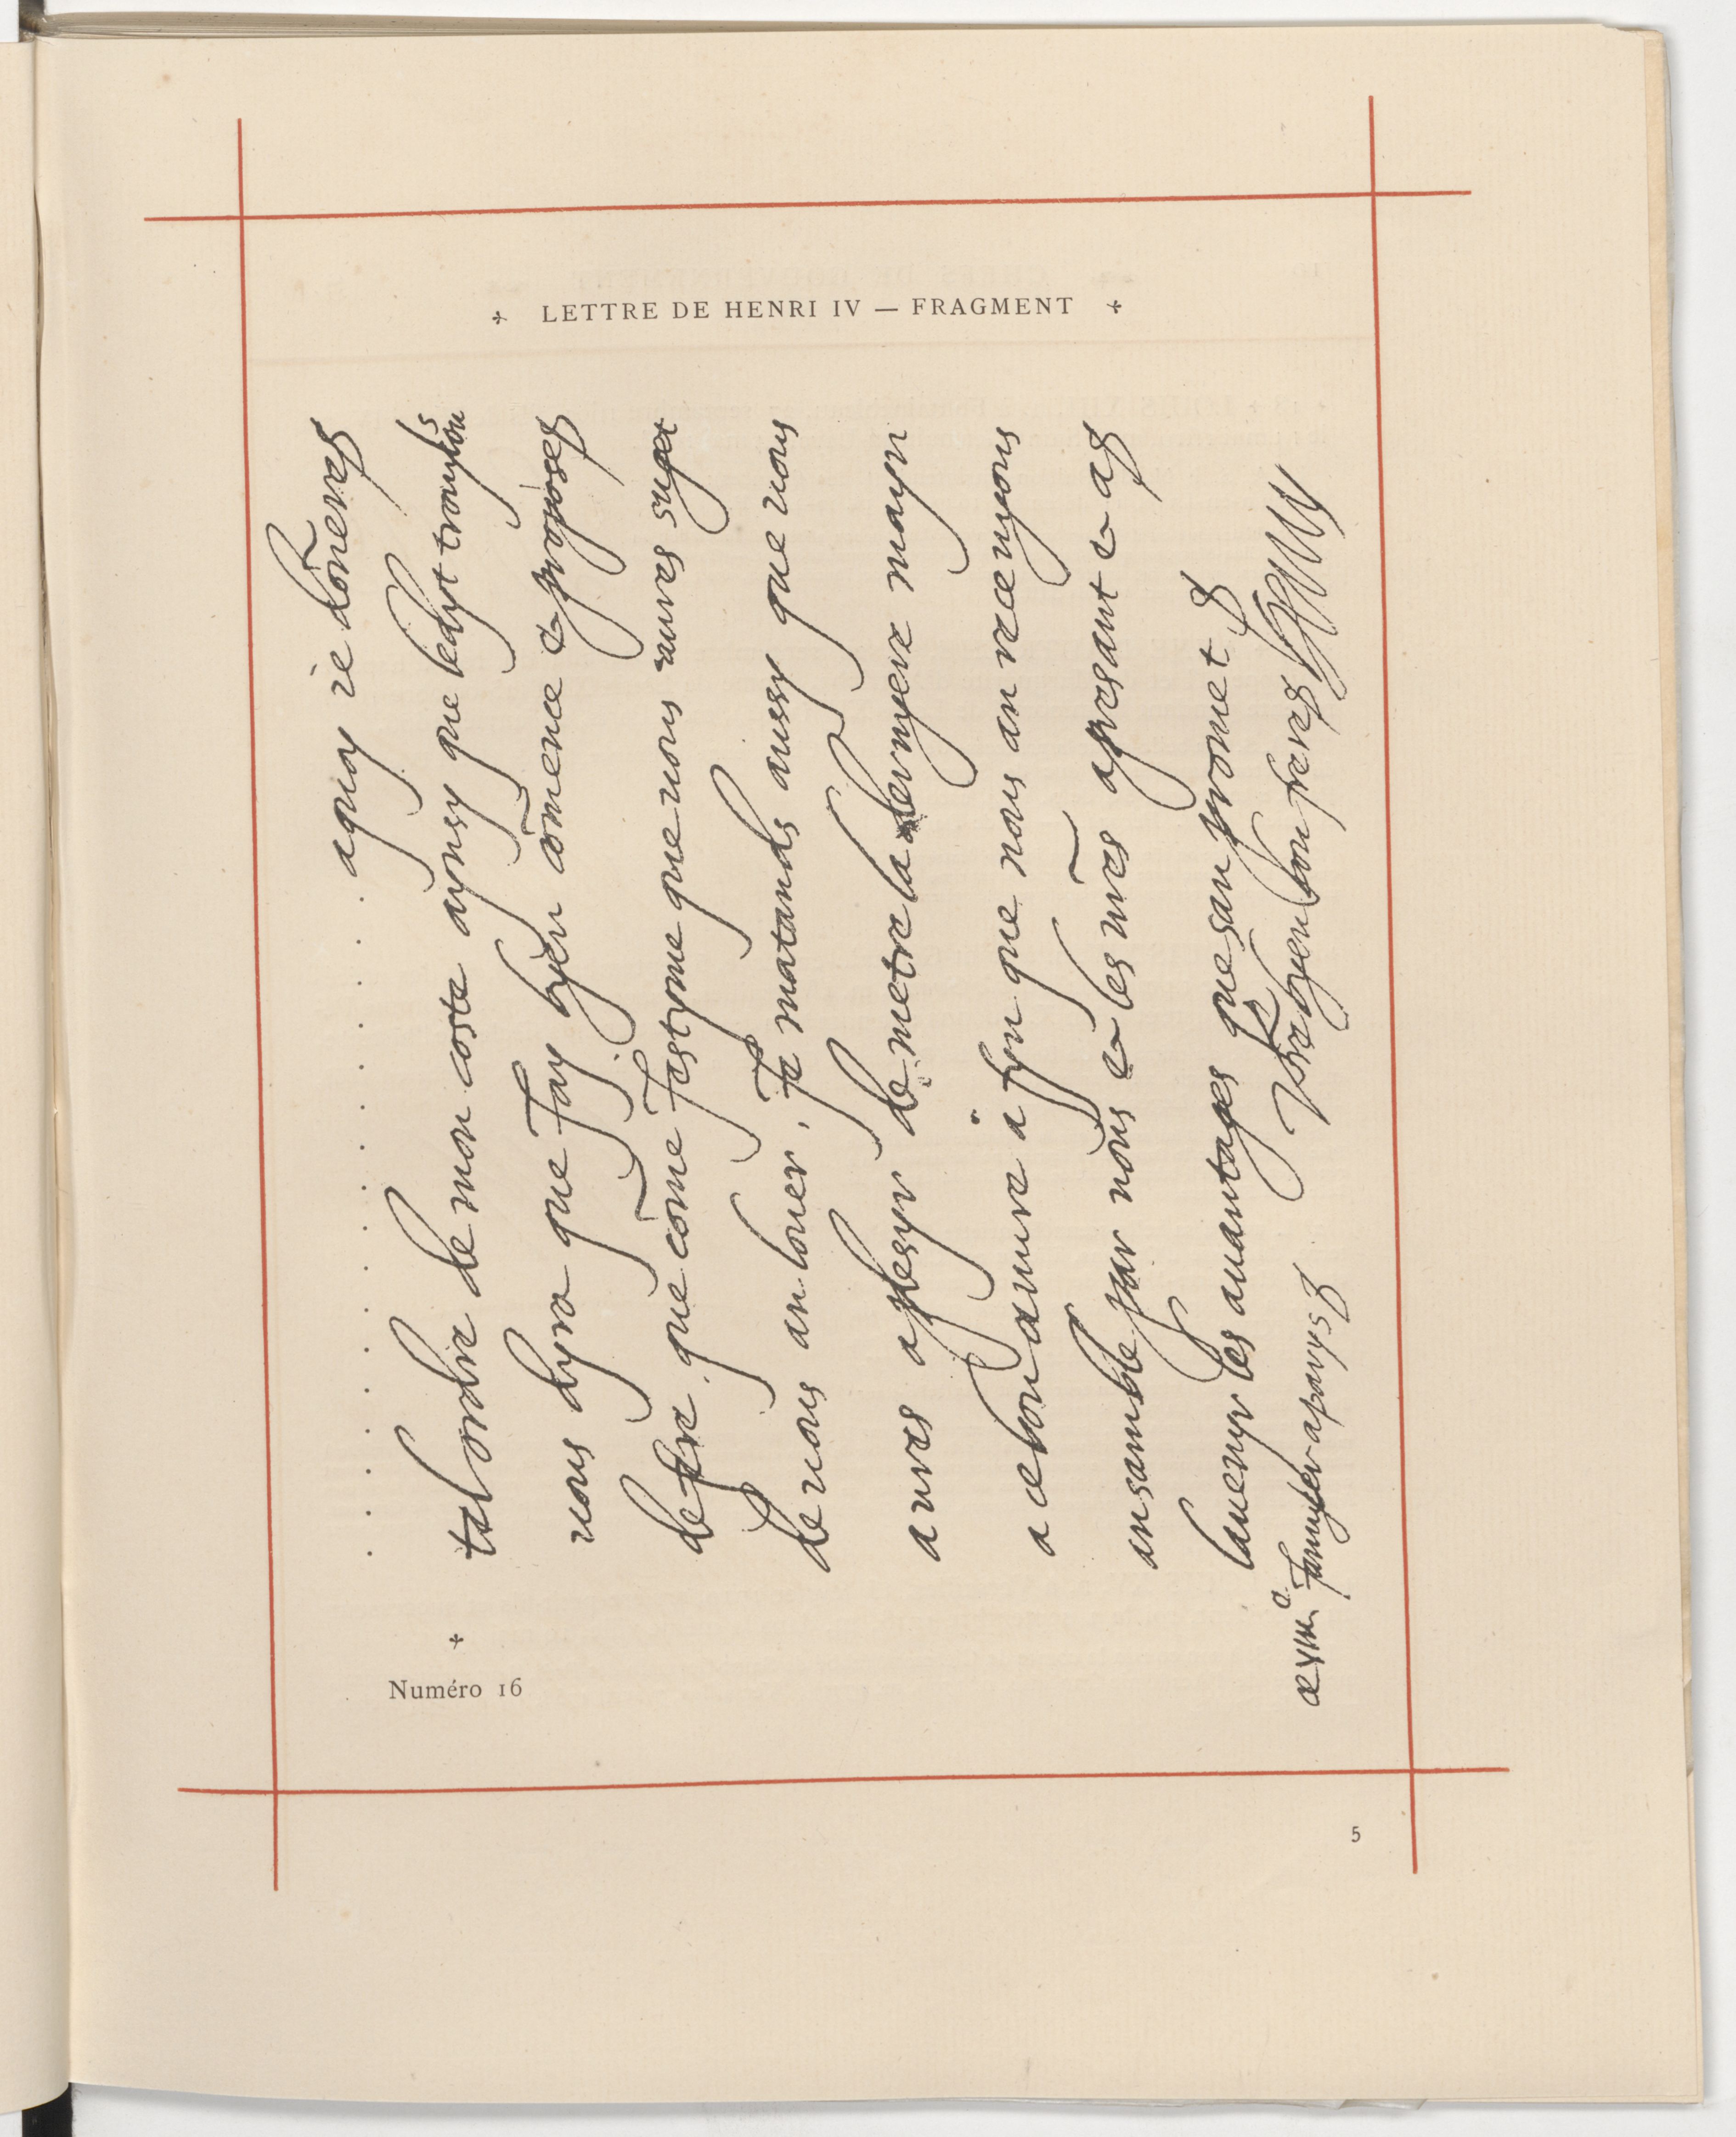 LETTRE DE HENRI IV — FRAGMENT
. . . . . . . . . . aquoy ie dōneray
tel ordre de mon coste aynsy que ledyt trouyllon
vous dyra que Jay byen cōmence & propose
de fre, que cōme Jestyme que vous aures suget
de vous an louer, Je matands aussy que vous
aures a plesyr de metre la dernyere mayn
a ce bon œuvre afyn que nous an recevyons
ansamble par nous & les nr̄es apresant & a
lavenyr les avantages quesan promet
ce xxiiia Janvyer a parys
Vr̄e byen bon frere
HENRY
Numéro 16
5